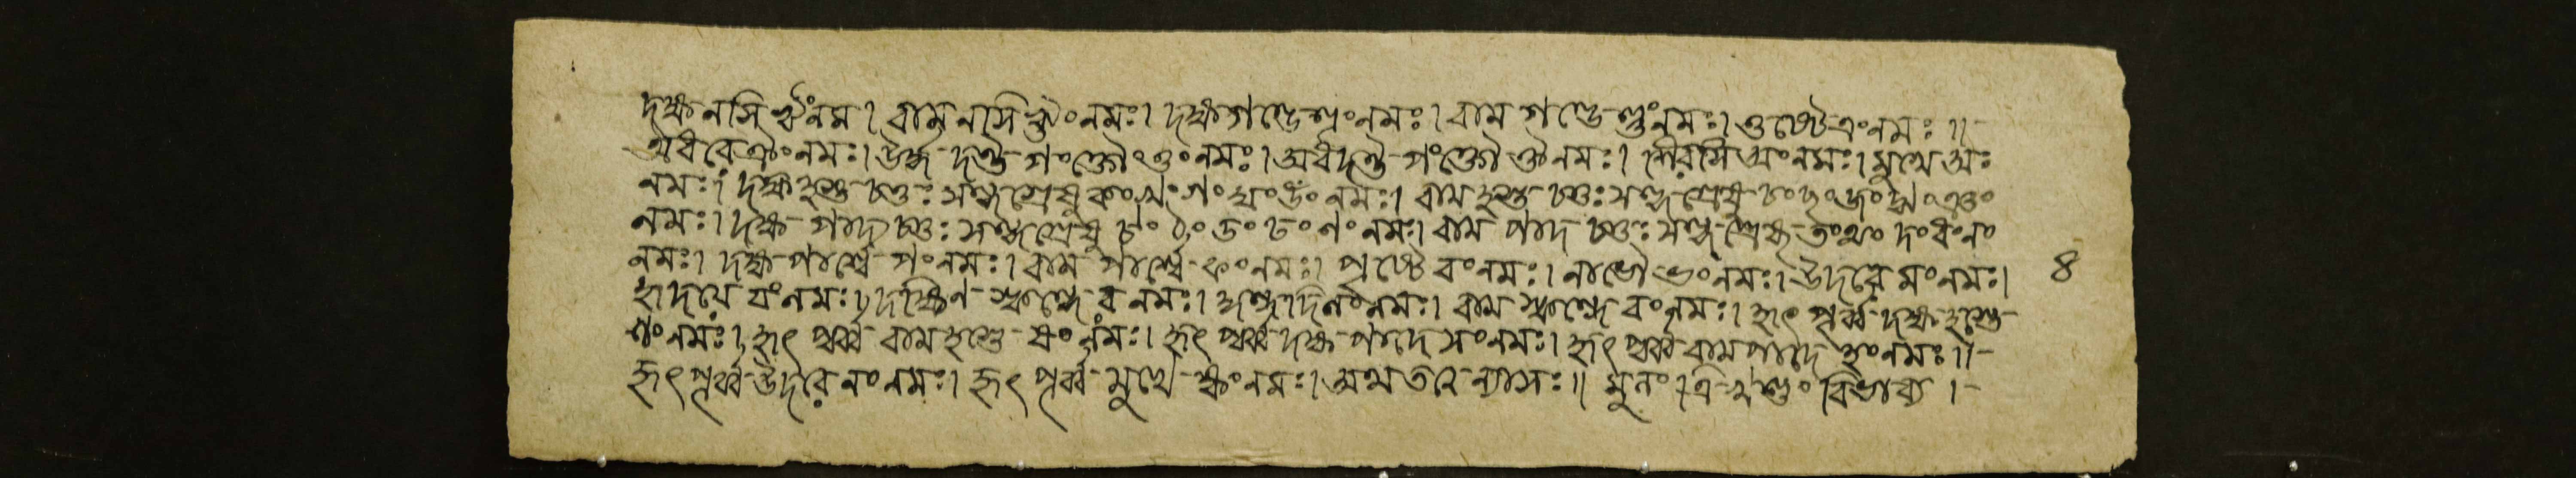 দক্ষনসি ঋংনম। বামনসি ৠংনমঃ। দক্ষগণ্ডে ঌংনমঃ। বাম গণ্ডে ৡংনমঃ। ওষ্ঠে এংনমঃ॥
অধরে ঐংনমঃ। উর্দ্ধ দন্ত পংক্তৌ ওংনমঃ। অধদন্ত পংক্তৌ ঔনমঃ। শিরসি অংনমঃ। মুখে অঃ
নমঃ। দক্ষ হস্ত সন্ধগ্রেষু কং খং গং ঘং ঙং নমঃ। বাম হস্ত সন্ধগ্রেষু চং ছং জং ঝং ঞং
নমঃ। দক্ষ পাদ সন্ধগ্রেষু টং ঠং ডং ঢং ণং নমঃ। বাম পাদ তং থং দং ধং নং
নমঃ। দক্ষ পার্শ্বে পংনমঃ। বাম পার্শ্বে ফংনমঃ। পৃষ্ঠে বংনমঃ। নাভৌ ভংনমঃ। উদরে মংনমঃ। ৪
হৃদয়ে যংনমঃ। দক্ষিণ স্কন্ধে বনমঃ। বাম স্কন্ধে বংনমঃ। হৃৎ পূর্ব্ব দক্ষ হস্তে
শংনমঃ। হৃৎ পূর্ব্ব বামহস্তে ষংনমঃ। হৃৎ পূর্ব্ব দক্ষ পাদে সংনমঃ। হৃৎ পূর্ব্ব বামপাদে হংনমঃ॥
হৃৎপূর্ব্ব উদরে নংনমঃ। হৃৎ পূর্ব্ব মুখে ক্ষংনমঃ। ন্যাসঃ॥ বিভাব্য।